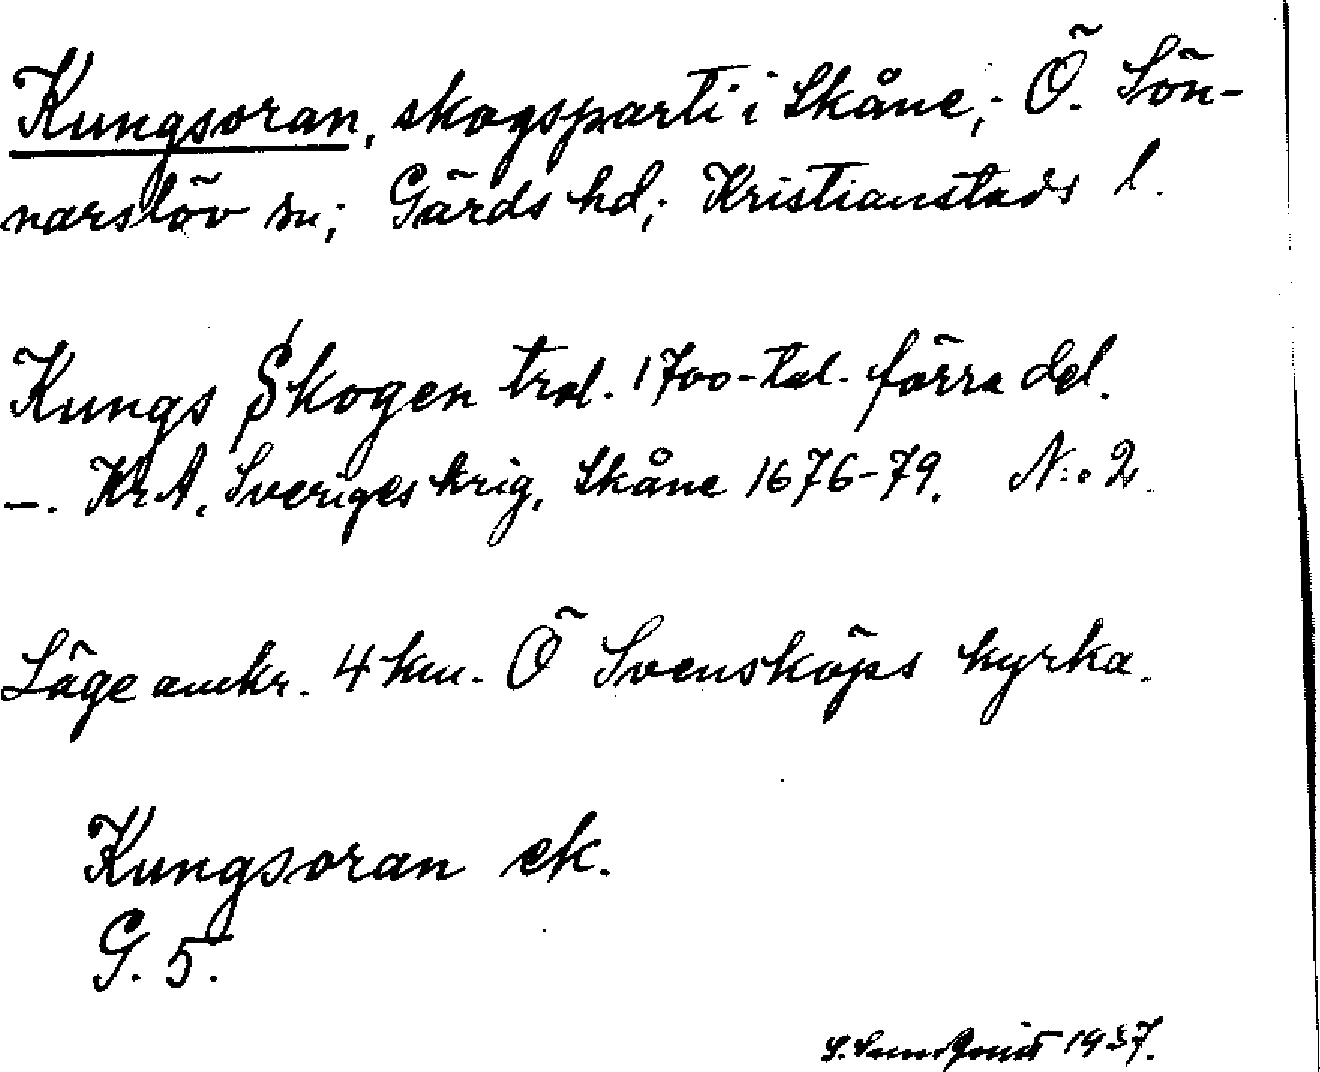 Kungsoran, skogsparti i Skåne; Ö. Sön-
narslöv sn; Gärds hd; Kristianstads l.
Kungs Skogen trol. 1700-tal. förra del.
–. Kr.A. Sveriges krig, Skåne 1676-79. N:o 2.
Läge omkr. 4 km. Ö Svensköps kyrka.
Kungsoran ek.
G. 5.
S. Sundquist 1937.